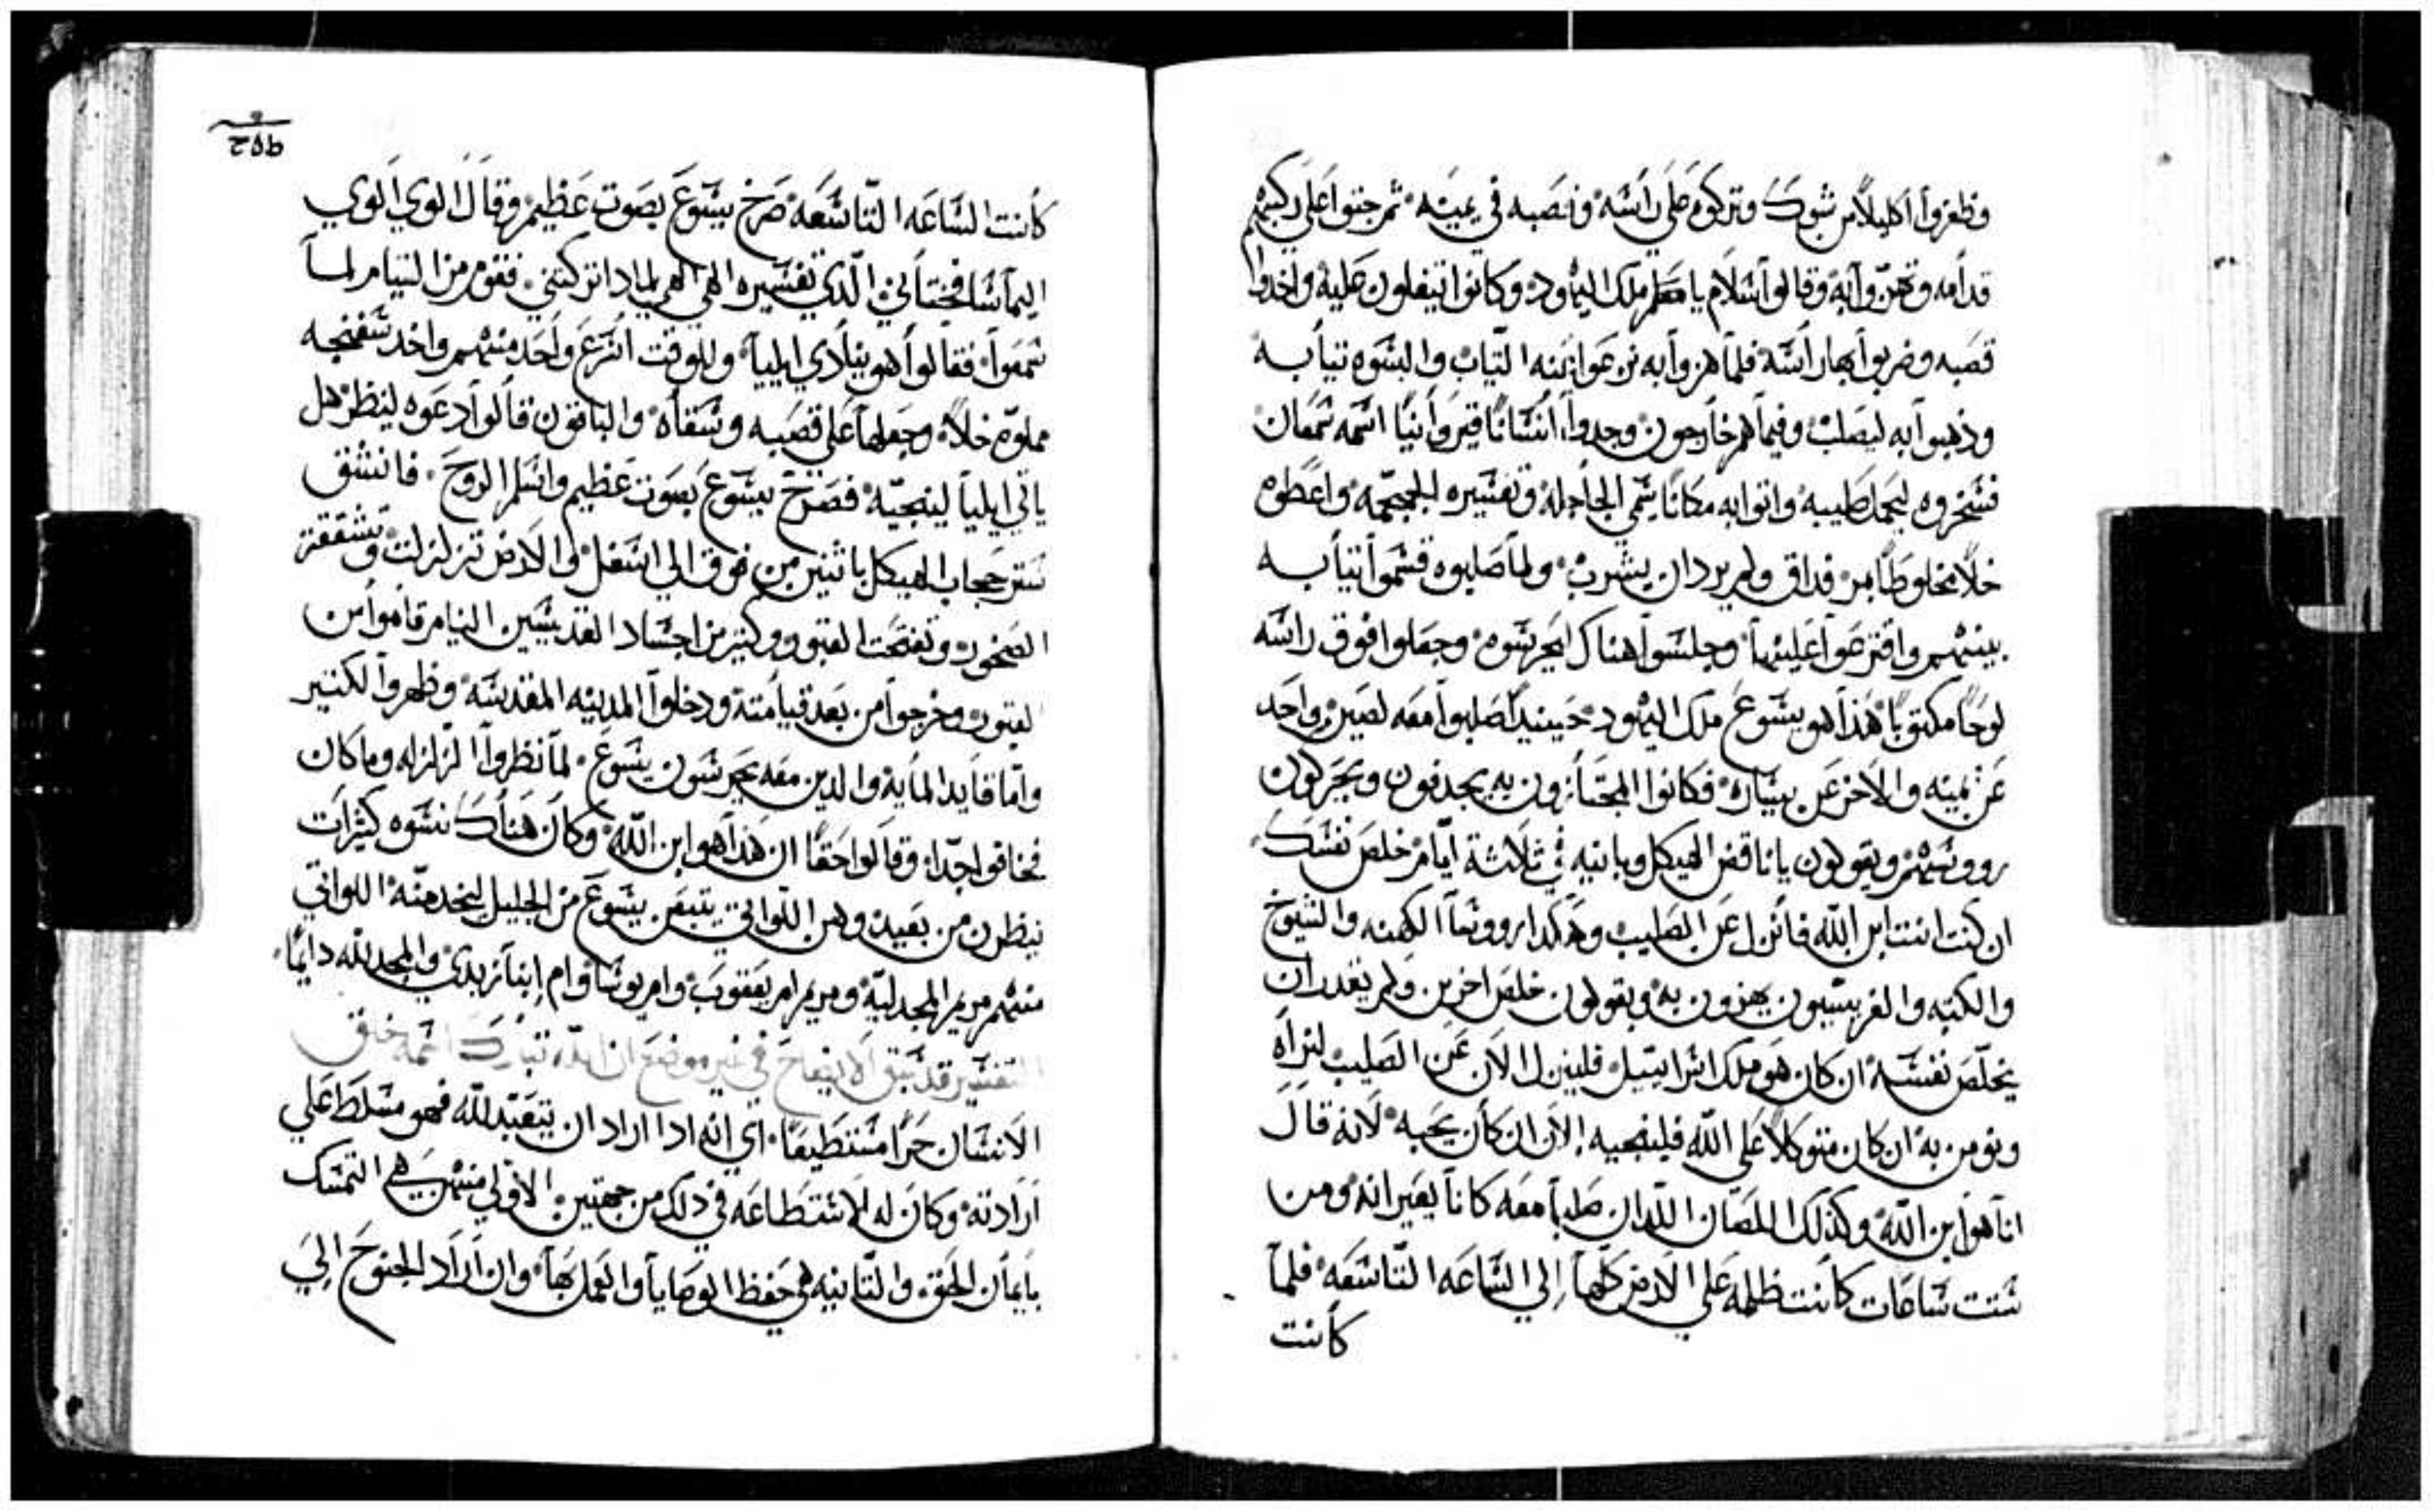 وظفروا اكليلًا من شوك وتركوه على راسه وقصبه في يمينه ثم جثوا على ركبهم
قدامه وتهزّوا به وقالوا سلام يا معلم ملك اليهود وكانوا يتفلون عليه واخدوا
قصبه وضربوا بها راسه فلما هزوا به نزعوا عنه التياب والبسوه تيابه
وذهبوا به ليصلب وفيما هم خارجون وجدوا انسانًا قيروانيًا اسمه سمعان
فسخروه ليحمل صليبه واتوا به مكانًا يسمي الجاجله وتفسيره الجمجمه واعطوه
خلًا مخلوطًا بمر فداق ولم يرد ان يشرب ولما صلبوه قسموا تيابه
بينهم واقترعوا عليها وجلسوا هناك يحرسوه وجعلوا فوق راسه
لوحًا مكتوبًا هذا هو يسوع ملك اليهود حينيدًا صلبوا معه لصين واحد
عن يمينه والاخر عن يساره فكانوا المجتازون به يجدفون ويحركون
رووسهم ويقولون يا ناقض الهيكل وبانيه في ثلاثة ايام خلص نفسك
ان كنت انت ابن الله فانزل عن الصليب وهكدا رووسا الكهنه والشيوخ
والكتبه والفريسيون يهزون به ويقولون خلص اخرين ولم يقدر ان
يخلص نفسه ان كان هو ملك اسراييل فلينزل الان عن الصليب لنراه
ونومن به ان كان متوكلًا على الله فلينجيه الان ان كان يحبه لانه قال
انا هو ابن الله وكذلك اللصان اللدان صلبا معه كانا يعيرانه ومن
ستت ساعات كانت ظلمه علي الارض كلها إلي الساعه التاسعه فلما
كانت
٢٥٩
كانت الساعه التاسعه صرخ يسوع بصوت عظيم وقال الوي الوي
اليما سافختاني الّذي تفسيره الهي الهي لمادا تركتني فقوم من القيام لما
سمعوا فقالوا هو ينادي ايليا وللوقت اسرع واحد منهم واخد سفنجه
مملوّه خلًا وجعلها على قصبه وسقاه والباقون قالوا دعوه لينظر هل
ياتي ايليا لينجيّه فصرخ يسوع بصوت عظيم واسلم الروح فانشق
ستر حجاب الهيكل باثنين من فوق الي اسفل والارض تزلزلت وتشققت
الصخور وتفتحت القبور وكثير من اجساد القديسين النيام قاموا من
القبور وخرجوا من بعد قيامته ودخلوا المدينه المقدسه وظهروا لكتير
وامّا قايد المايه والدين معه يحرسون يسوع لما نظروا الزلزله وما كان
فخافوا جدّا وقالوا حقًا ان هذا هو ابن الله وكان هناك نسوه كثيرات
ينظرن من بعيد وهن اللواتي يتبعن يسوع من الجليل ليخدمنّه اللواتي
منهم مريم المجدليّه ومريم ام يعقوب وام يوسا وام إبنا زبدي والمجد لله دايمًا
التفسير قد سبق الايضاح في غير موضع ان الله تبارك اسمه خلق
الانسان حرًا مستطيعًا اي انه ادا اراد ان يتعبّد لله فهو مسلط علي
ارادته وكان له الاستطاعه في ذلك من جهتين الاولي منهن هي التمسك
بايمان الحق والتانيه هي حفظ الوصايا والعمل بها وان اراد الجنوح إلي